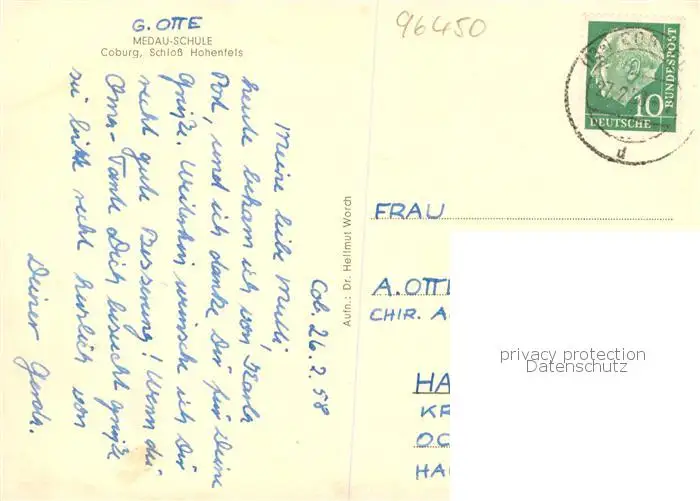 G. OTTE
MEDAU-SCHULE
Coburg, Schloß Hohenfels
96450
10
DEUTSCHE
BUNDESPOST
d
Cob. 26.2.58
Meine liebe Mutti,
heute bekam ich von Karla
Post, und ich danke Dir für Deine
Grüße. Weiterhin wünsche ich Dir
recht gute Besserung! Wenn die
Oma-Tante Dich besucht grüße
sie bitte recht herzlich von
Deiner Gerda.
Aufn.: Dr. Hellmut Worch
FRAU
A. OTTE
CHIR. A
HA
KR
OC
HA
privacy protection
Datenschutz